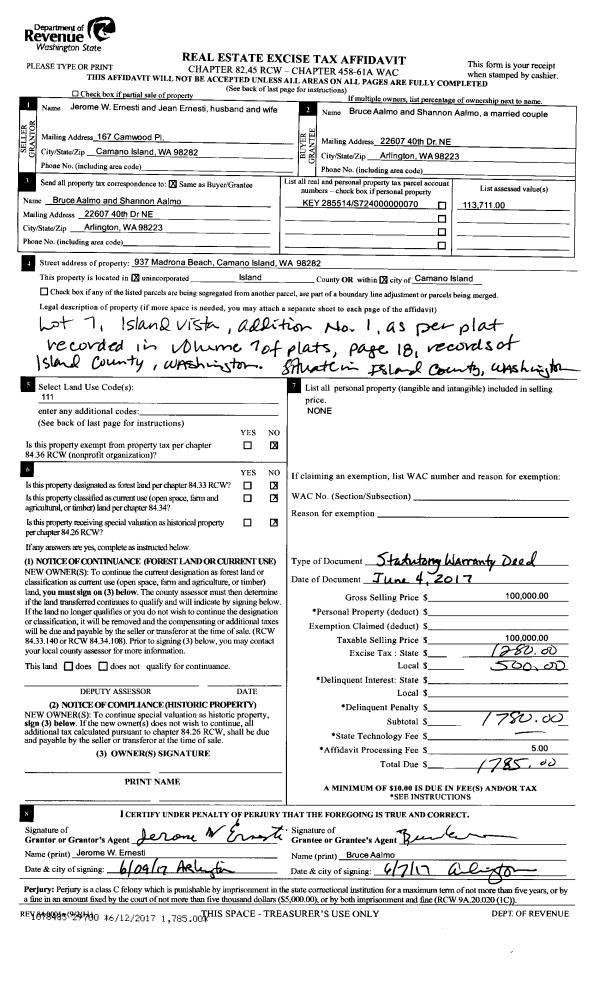 Department of
Revenue
Washington State
REAL ESTATE EXCISE TAX AFFIDAVIT
PLEASE TYPE OR PRINT
CHAPTER 82.45 RCW – CHAPTER 458-61A WAC
This form is your receipt
when stamped by cashier.
THIS AFFIDAVIT WILL NOT BE ACCEPTED UNLESS ALL AREAS ON ALL PAGES ARE FULLY COMPLETED
(See back of last page for instructions)
Check box if partial sale of property
If multiple owners, list percentage of ownership next to name.
1
SELLER
GRANTOR
Name Jerome W. Ernesti and Jean Ernesti, husband and wife
Mailing Address 167 Camwood Pl.
City/State/Zip Camano Island, WA 98282
Phone No. (including area code)
2
BUYER
GRANTEE
Name Bruce Aalmo and Shannon Aalmo, a married couple
Mailing Address 22607 40th Dr. NE
City/State/Zip Arlington, WA 98223
Phone No. (including area code)
3
Send all property tax correspondence to: Same as Buyer/Grantee
Name Bruce Aalmo and Shannon Aalmo
Mailing Address 22607 40th Dr NE
City/State/Zip Arlington, WA 98223
Phone No. (including area code)
List all real and personal property tax parcel account
numbers – check box if personal property
KEY 285514/S724000000070
List assessed value(s)
113,711.00
4
Street address of property: 937 Madrona Beach, Camano Island, WA 98282
This property is located in unincorporated Island County OR within city of Camano Island
Check box if any of the listed parcels are being segregated from another parcel, are part of a boundary line adjustment or parcels being merged.
Legal description of property (if more space is needed, you may attach a separate sheet to each page of the affidavit)
Lot 7, Island Vista, addition No. 1, as per plat
recorded in volume 7 of plats, page 18, records of
Island County, Washington. Situate in Island County, Washington
5
Select Land Use Code(s):
111
enter any additional codes:
(See back of last page for instructions)
YES NO
Is this property exempt from property tax per chapter
84.36 RCW (nonprofit organization)?
6
YES NO
Is this property designated as forest land per chapter 84.33 RCW?
Is this property classified as current use (open space, farm and
agricultural, or timber) land per chapter 84.34?
Is this property receiving special valuation as historical property
per chapter 84.26 RCW?
If any answers are yes, complete as instructed below.
(1) NOTICE OF CONTINUANCE (FOREST LAND OR CURRENT USE)
NEW OWNER(S): To continue the current designation as forest land or
classification as current use (open space, farm and agriculture, or timber)
land, you must sign on (3) below. The county assessor must then determine
if the land transferred continues to qualify and will indicate by signing below.
If the land no longer qualifies or you do not wish to continue the designation
or classification, it will be removed and the compensating or additional taxes
will be due and payable by the seller or transferor at the time of sale. (RCW
84.33.140 or RCW 84.34.108). Prior to signing (3) below, you may contact
your local county assessor for more information.
This land does does not qualify for continuance.
DEPUTY ASSESSOR DATE
(2) NOTICE OF COMPLIANCE (HISTORIC PROPERTY)
NEW OWNER(S): To continue special valuation as historic property,
sign (3) below. If the new owner(s) does not wish to continue, all
additional tax calculated pursuant to chapter 84.26 RCW, shall be due
and payable by the seller or transferor at the time of sale.
(3) OWNER(S) SIGNATURE
PRINT NAME
7
List all personal property (tangible and intangible) included in selling
price.
NONE
If claiming an exemption, list WAC number and reason for exemption:
WAC No. (Section/Subsection)
Reason for exemption
Type of Document Statutory Warranty Deed
Date of Document June 4, 2017
Gross Selling Price $ 100,000.00
*Personal Property (deduct) $
Exemption Claimed (deduct) $
Taxable Selling Price $ 100,000.00
Excise Tax : State $ 1280.00
Local $ 500.00
*Delinquent Interest: State $
Local $
*Delinquent Penalty $
Subtotal $ 1780.00
*State Technology Fee $
*Affidavit Processing Fee $ 5.00
Total Due $ 1785.00
A MINIMUM OF $10.00 IS DUE IN FEE(S) AND/OR TAX
*SEE INSTRUCTIONS
8
I CERTIFY UNDER PENALTY OF PERJURY THAT THE FOREGOING IS TRUE AND CORRECT.
Signature of
Grantor or Grantor's Agent Jerome W Ernesti
Name (print) Jerome W. Ernesti
Date & city of signing: 6/09/17 Arlington
Signature of
Grantee or Grantee's Agent
Name (print) Bruce Aalmo
Date & city of signing: 6/7/17 Arlington
Perjury: Perjury is a class C felony which is punishable by imprisonment in the state correctional institution for a maximum term of not more than five years, or by
a fine in an amount fixed by the court of not more than five thousand dollars ($5,000.00), or by both imprisonment and fine (RCW 9A.20.020 (1C)).
6/12/2017 1,785.00
THIS SPACE - TREASURER'S USE ONLY
DEPT. OF REVENUE